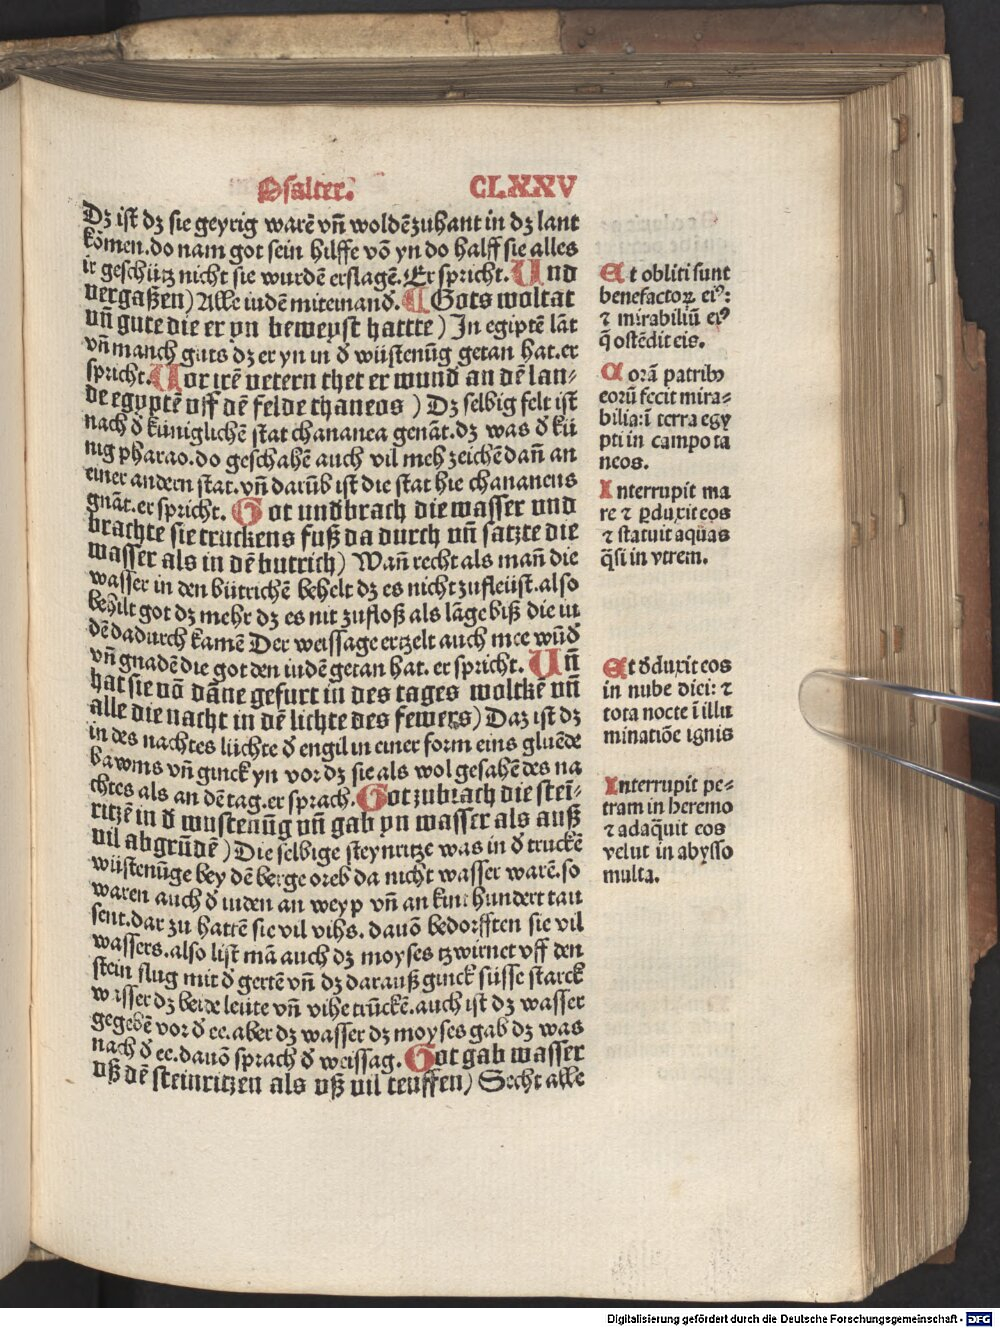 Psalter. CLXXV
Dz ist dz sie geyrig warē vñ woldē zuhant in dz lant
komen. do nam got sein hilffe vō yn do halff sie alles
ir geschütz nicht sie wurdē erslagē. Er spricht. Und
vergaßen) Alle iudē miteinand̄. Gots woltat
vñ gute die er yn beweyst hattte) In egiptē lāt
vñ manch guts dz er yn in d̄ wüstenūg getan hat. er
spricht. Vor irē vetern thet er wund̄ an dē lan-
de egyptē vff dē felde thaneos) Dz selbig felt ist
nach d̄ küniglichē stat chananea genāt. dz was d̄ kü
nig pharao. do geschahē auch vil meh zeichē dañ an
einer andern stat. vñ darūb ist die stat hie chananeus
gnāt. er spricht. Got undbrach die wasser und
brachte sie truckens fuß da durch vñ satzte die
wasser als in dē butrich) Wañ recht als mañ die
wasser in den bütrichē behelt dz es nicht zufleüst. also
behilt got dz mehr dz es nit zufloß als lāge biß die iu
dē dadurch kamē Der weissage ertzelt auch mee wūd̄
vñ gnadē die got den iudē getan hat. er spricht. Uñ
hat sie vō dāne gefurt in des tages wolckē vñ
alle die nacht in dē lichte des fewers) Daz ist dz
in des nachtes lüchte d̄ engil in einer form eins gluēde
bawms vñ ginck yn vor dz sie als wol gesahē des na
chtes als an dē tag. er sprach. Got zubrach die stei-
ritzē in d̄ wustenūg vñ gab yn wasser als auß
vil abgrūdē) Die selbige steynritze was in d̄ truckē
wüstenūge bey dē berge oreb da nicht wasser warē. so
waren auch d̄ iuden an weyp vñ an kint hundert tau
sent. dar zu hattē sie vil vihs. dauō bedorfften sie vil
wassers. also list mā auch dz moyses tzwirnet vff den
stein slug mit d̄ gertē vñ dz darauß ginck süsse starck
wasser dz beide leute vñ vihe trūckē. auch ist dz wasser
gegebē vor d̄ ee. aber dz wasser dz moyses gab dz was
nach d̄ ee. dauō sprach d̄ weissag. Got gab wasser
vß dē steinritzen als vß vil teuffen) Secht alle
Et obliti sunt
benefactoꝝ eiꝰ:
⁊ mirabiliū eiꝰ
q̄ ostēdit eis.
Corā patribꝰ
eorū fecit mira-
bilia: ī terra egy
pti in campo ta
neos.
Interrupit ma
re ⁊ ꝑduxit eos
⁊ statuit aq̄uas
q̄si in vtrem.
Et d̄duxit eos
in nube diei: ⁊
tota nocte ī illu
minatiōe ignis
Interrupit pe-
tram in heremo
⁊ adaq̄uit eos
velut in abysso
multa.
Digitalisierung gefördert durch die Deutsche Forschungsgemeinschaft - DFG